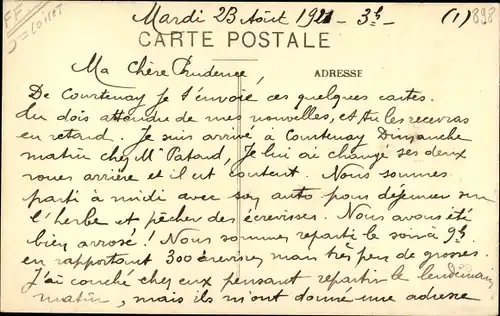 FF
J = Loiret
Mardi 23 Août 1921 - 3h - (1) 898
CARTE POSTALE
Ma Chère Prudence, ADRESSE
De Courtenay je t'envoie ces quelques cartes.
Tu dois attendre de mes nouvelles, et tu les recevras
en retard. Je suis arrivé à Courtenay Dimanche
matin chez Mr Pataud, Je lui ai changé ses deux
roues arrière et il est content. Nous sommes
parti à midi avec son auto pour déjeuner sur
l'herbe et pêcher des écrevisses. Nous avons été
bien arrosé ! Nous sommes reparti le soir à 9h
en rapportant 300 écrevisses mais très peu de grosses.
J'ai couché chez eux pensant repartir le lendemain
matin, mais ils m'ont donné une adresse